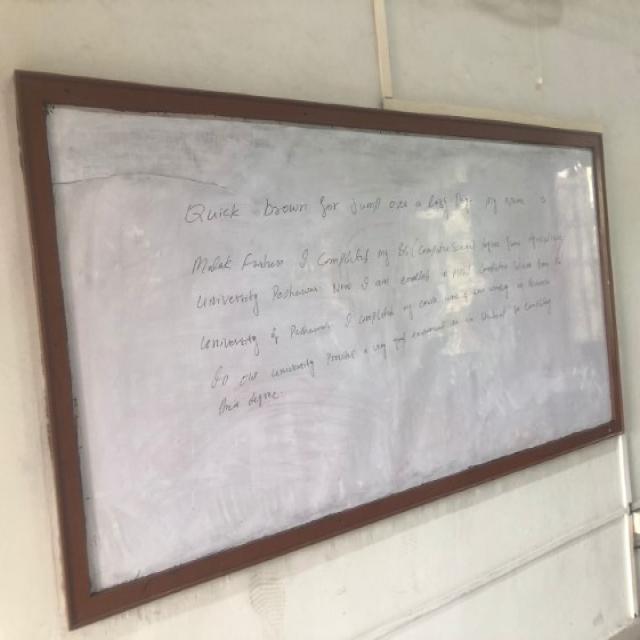 Quick brown for jump over a lazy My name is
Malak I completed my BS (Computer Science) degree from
University Peshawar. Now I am enrolled in Computer Science from the
University of Peshawar. I completed my
In our University Provide a very and environment to a student for completing
their degree.